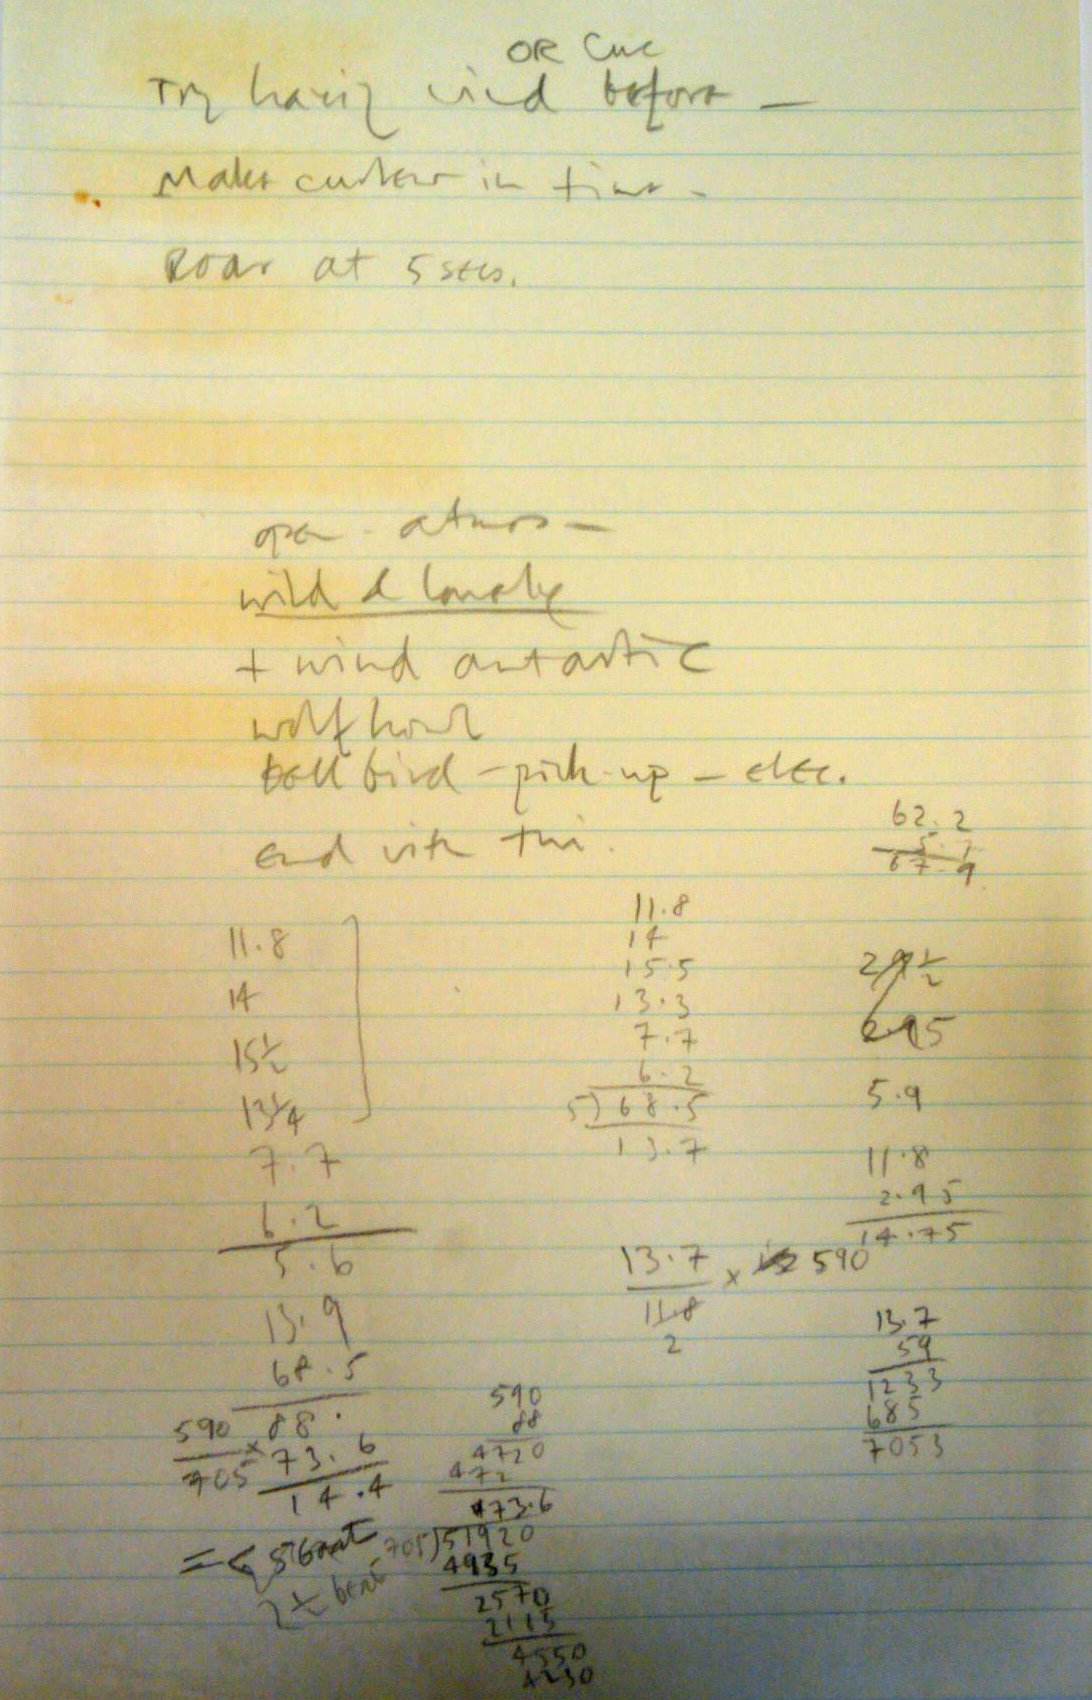 OR Cue
Try having wind before —
Make in time -
Roar at 5 secs.
open - atmos —
wild & lonely
+ wind antartic
wolf howl
bell bird — pick-up — elec.
end with this.
62.2
5.7
67.9
11.8
14
15½
13¼
7.7
6.2
5.6
13.9
68.5
88.
73.6
14.4
590
705
x
11.8
14
15.5
13.3
7.7
6.2
5) 68.5
13.7
29½
2.95
5.9
11.8
2.95
14.75
13.7 x 590
11.8
2
13.7
59
1233
685
7053
590
88
4720
472
73.6
705)51920
4935
2570
2115
4550
4230
=
2½ beat